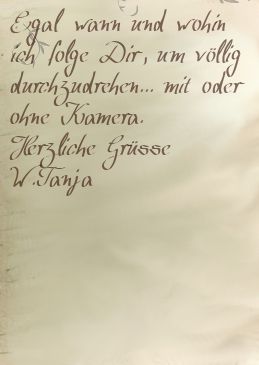 Egal wann und wohin
ich folge Dir, um völlig
durchzudrehen... mit oder
ohne Kamera.
Herzliche Grüsse
W.Tanja